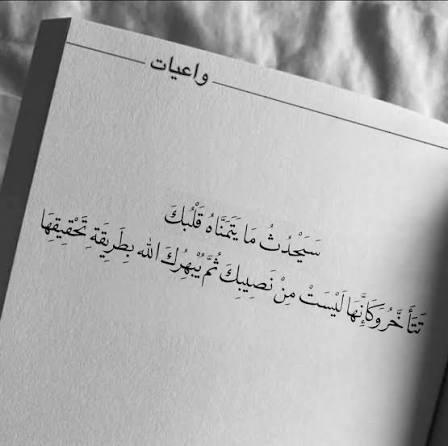 واعيات
سَيَحْدُثُ مَا يَتَمَنَّاهُ قَلْبُكَ
تَتَأَخَّرُ وَكَأَنَّهَا لَيْسَتْ مِنْ نَصِيبِكَ ثُمَّ يُبْهِرُكَ الله بِطَرِيقَةِ تَحْقِيقِهَا